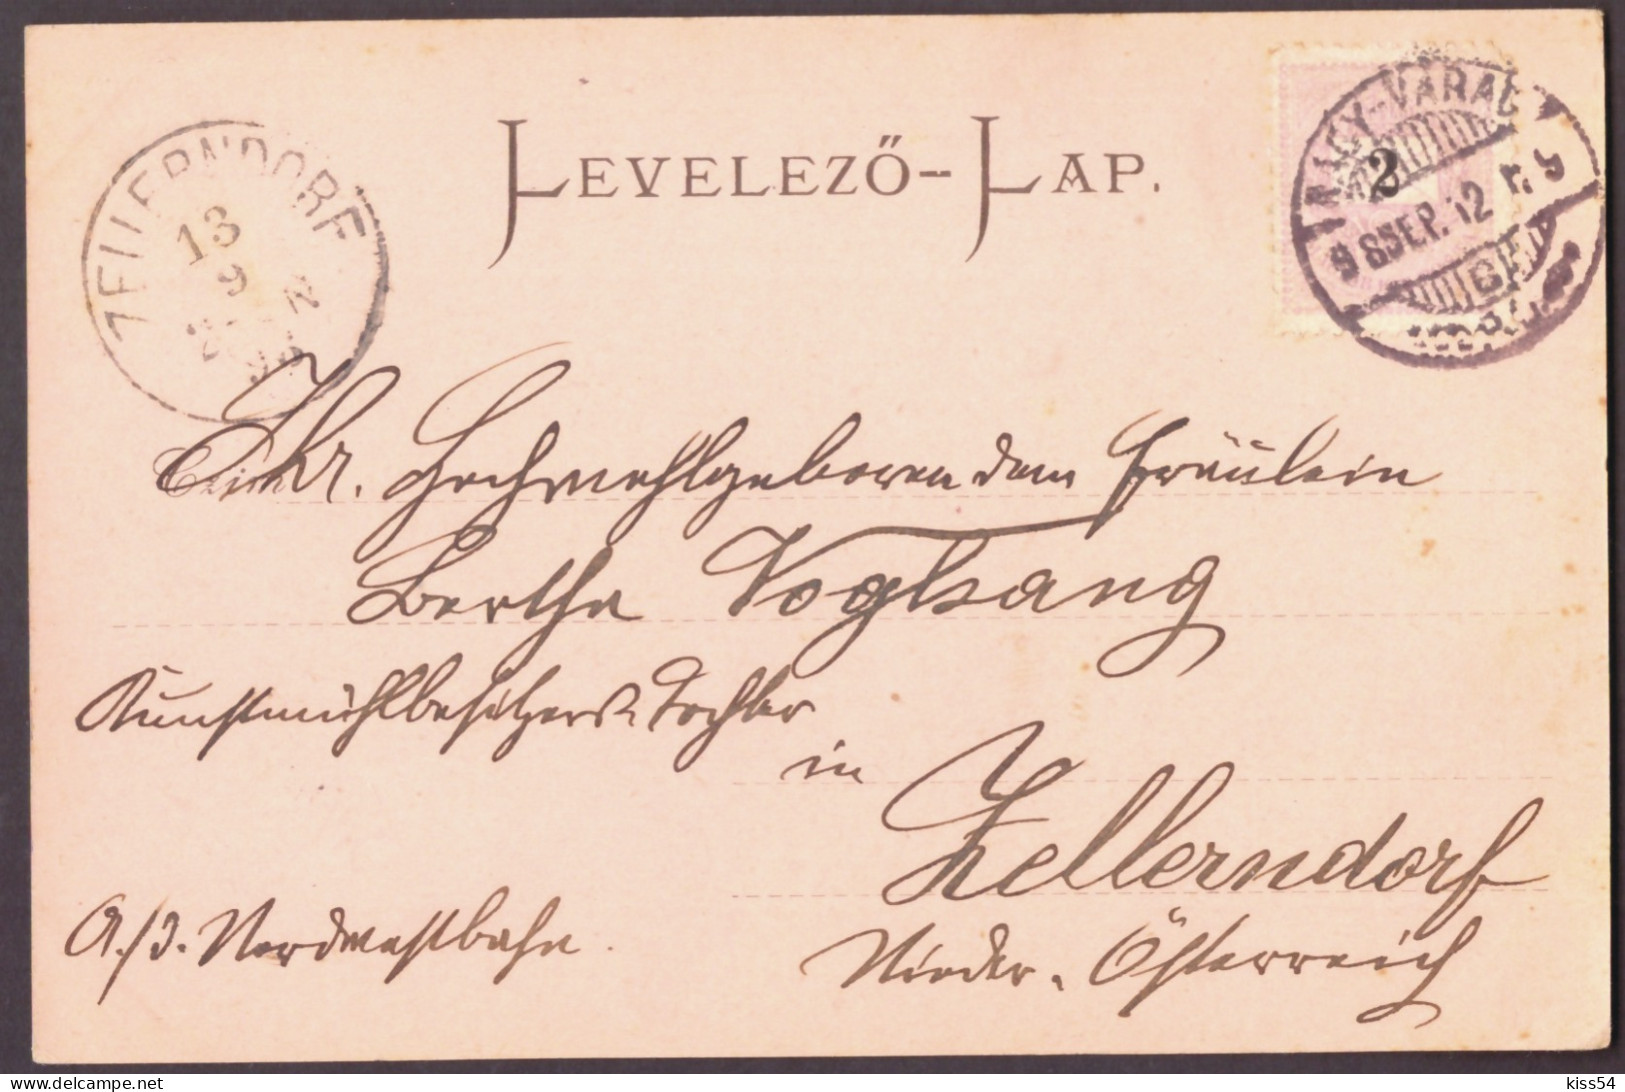 LEVELEZŐ-LAP.
NAGY-VÁRAD
98 SEP. 12 r. 9
2
ZELLERNDORF
13
9
N
Ihr. Hochwohlgeboren dem Fräulein
Bertha Voglsang
Kunstmühlbesitzers Tochter
in
Zellerndorf
a./d. Nordwestbahn.
Nieder-Österreich
delcampe.net
kiss54